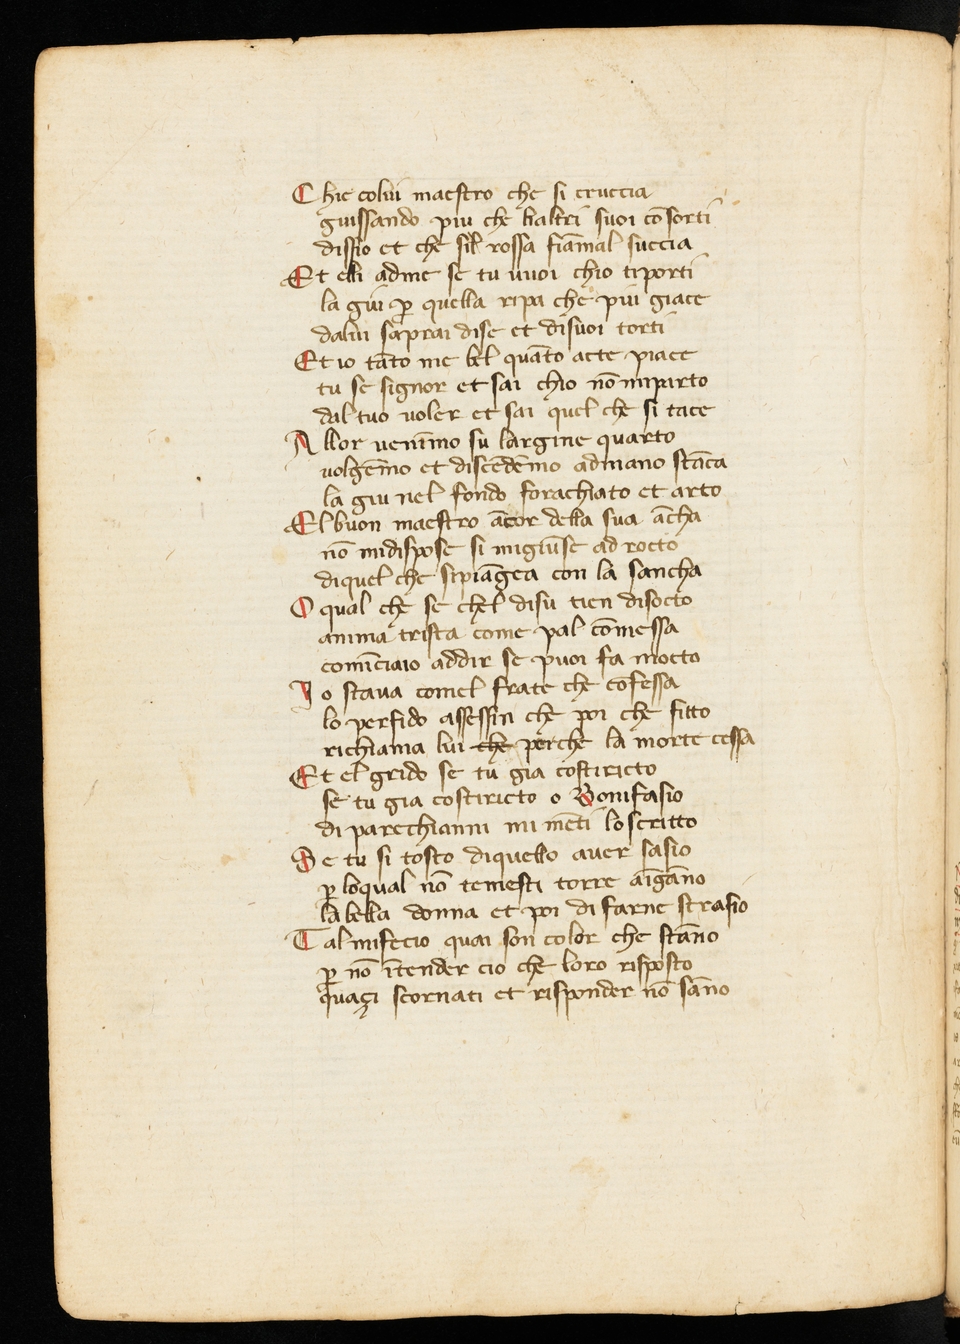 Chie colui maestro che si cruccia
guissando piu che haltri suoi cōsorti
dissio et che sil rossa fiāmal succia
Et elli adme se tu vuoi chio tiporti
la gui ꝑ quella ripa che piu giace
dalui saprai dise et disuoi torti
Et io tāto me bel quāto atte piace
tu se signor et sai chio nō miparto
dal tuo voler et sai quel che si tace
Allor uenimo su largine quarto
volgēmo et discēdēmo admano stāca
la giu nel fondo forachiato et arto
El buon maestro ācor della sua ācha
nō midispose si migiūse ad rocto
diquel che sipiāgea con la sancha
O qual che se chel disu tien disocto
anima trista come pal cōmessa
comīciaio addir se puoi fa mocto
Io staua comel frate che cōfessa
lo perfido assessin che poi che fitto
richiama lui che perche la morte cessa
Et el grido se tu gia costiricto
se tu gia costiricto o Bonifasio
di parechianni mi mēti loscritto
Se tu si tosto diquello auer sasio
ꝑ loqual nō temesti torre aīgāno
la bella donna et poi di farne strasio
Tal mifecio quai son color che stāno
ꝑ nō ītender cio che loro risposto
quaçi scornati et risponder nō sāno